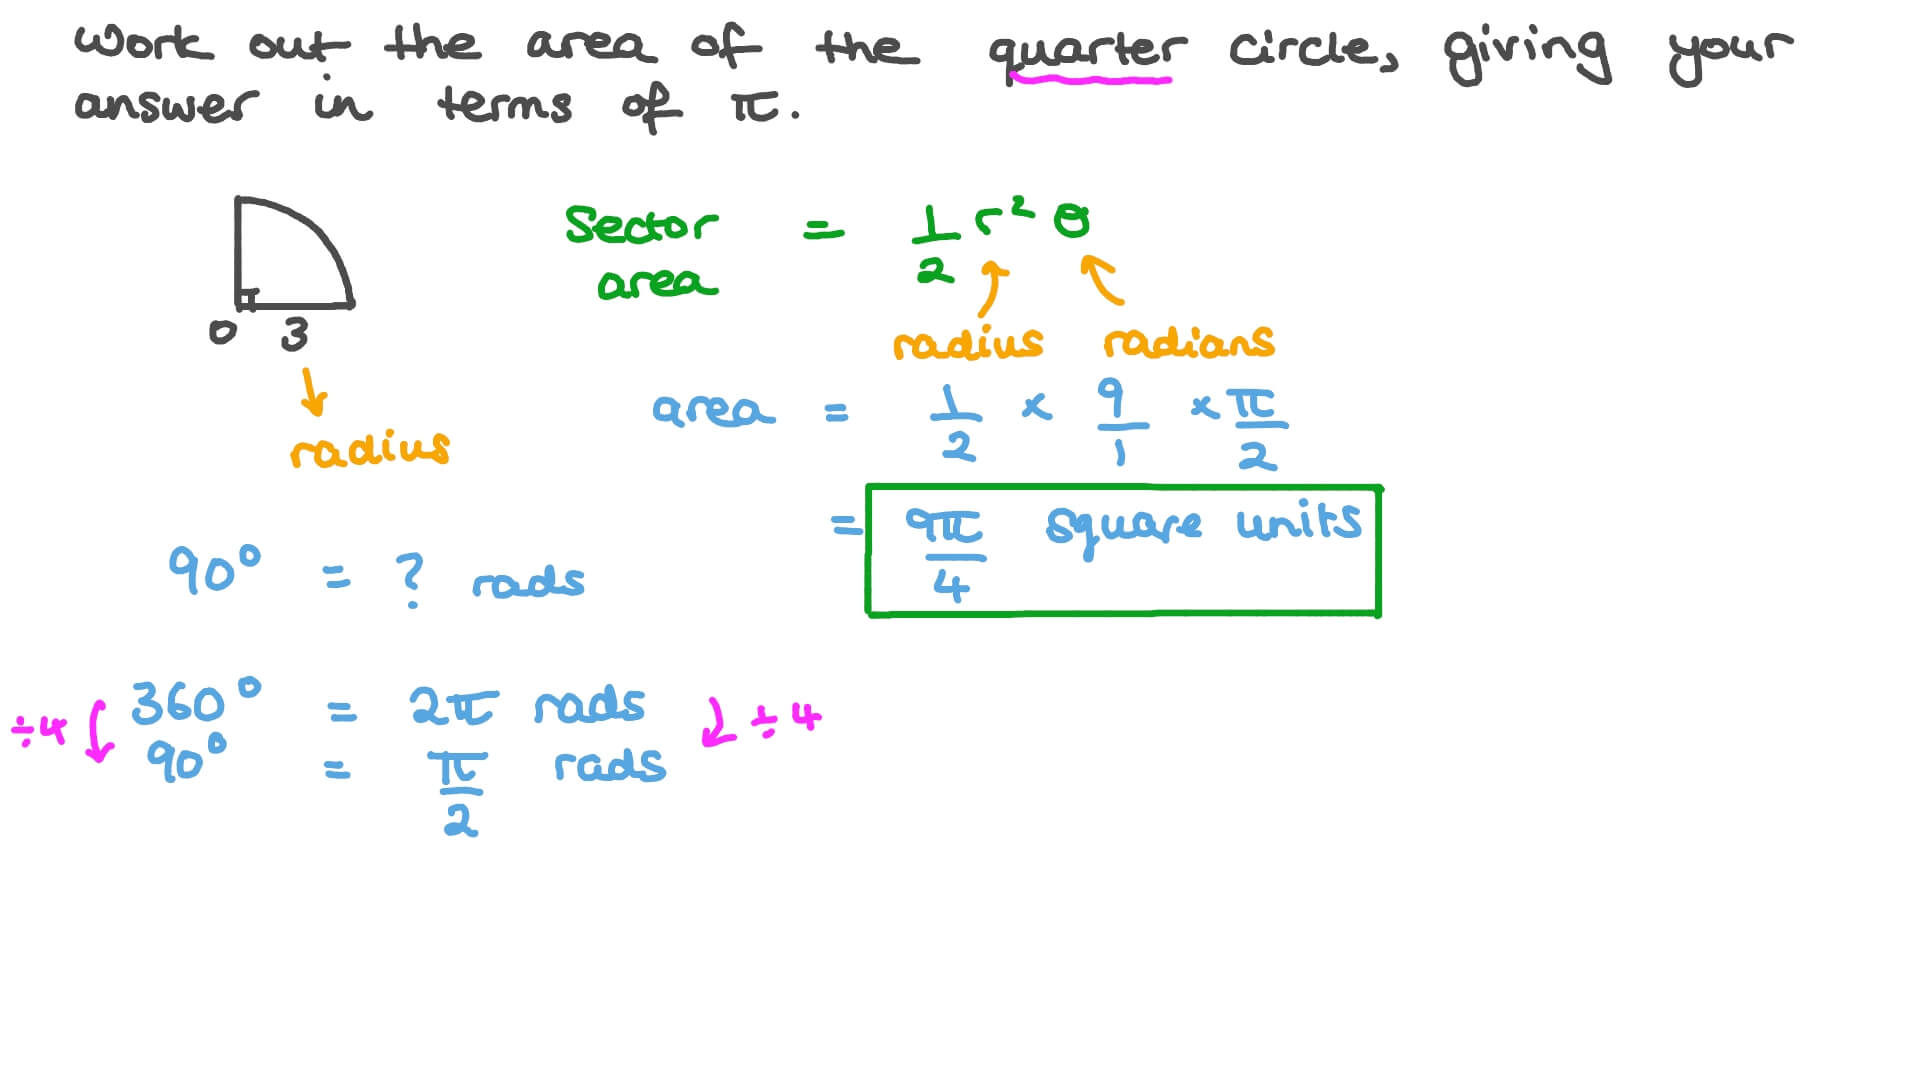 Work out the area of the quarter circle, giving your
answer in terms of π.
Sector area = 1/2 r² θ
radius radians
0 3
radius
area = 1/2 × 9/1 × π/2
= 9π/4 square units
90° = ? rads
÷4 360° = 2π rads ÷4
90° = π/2 rads